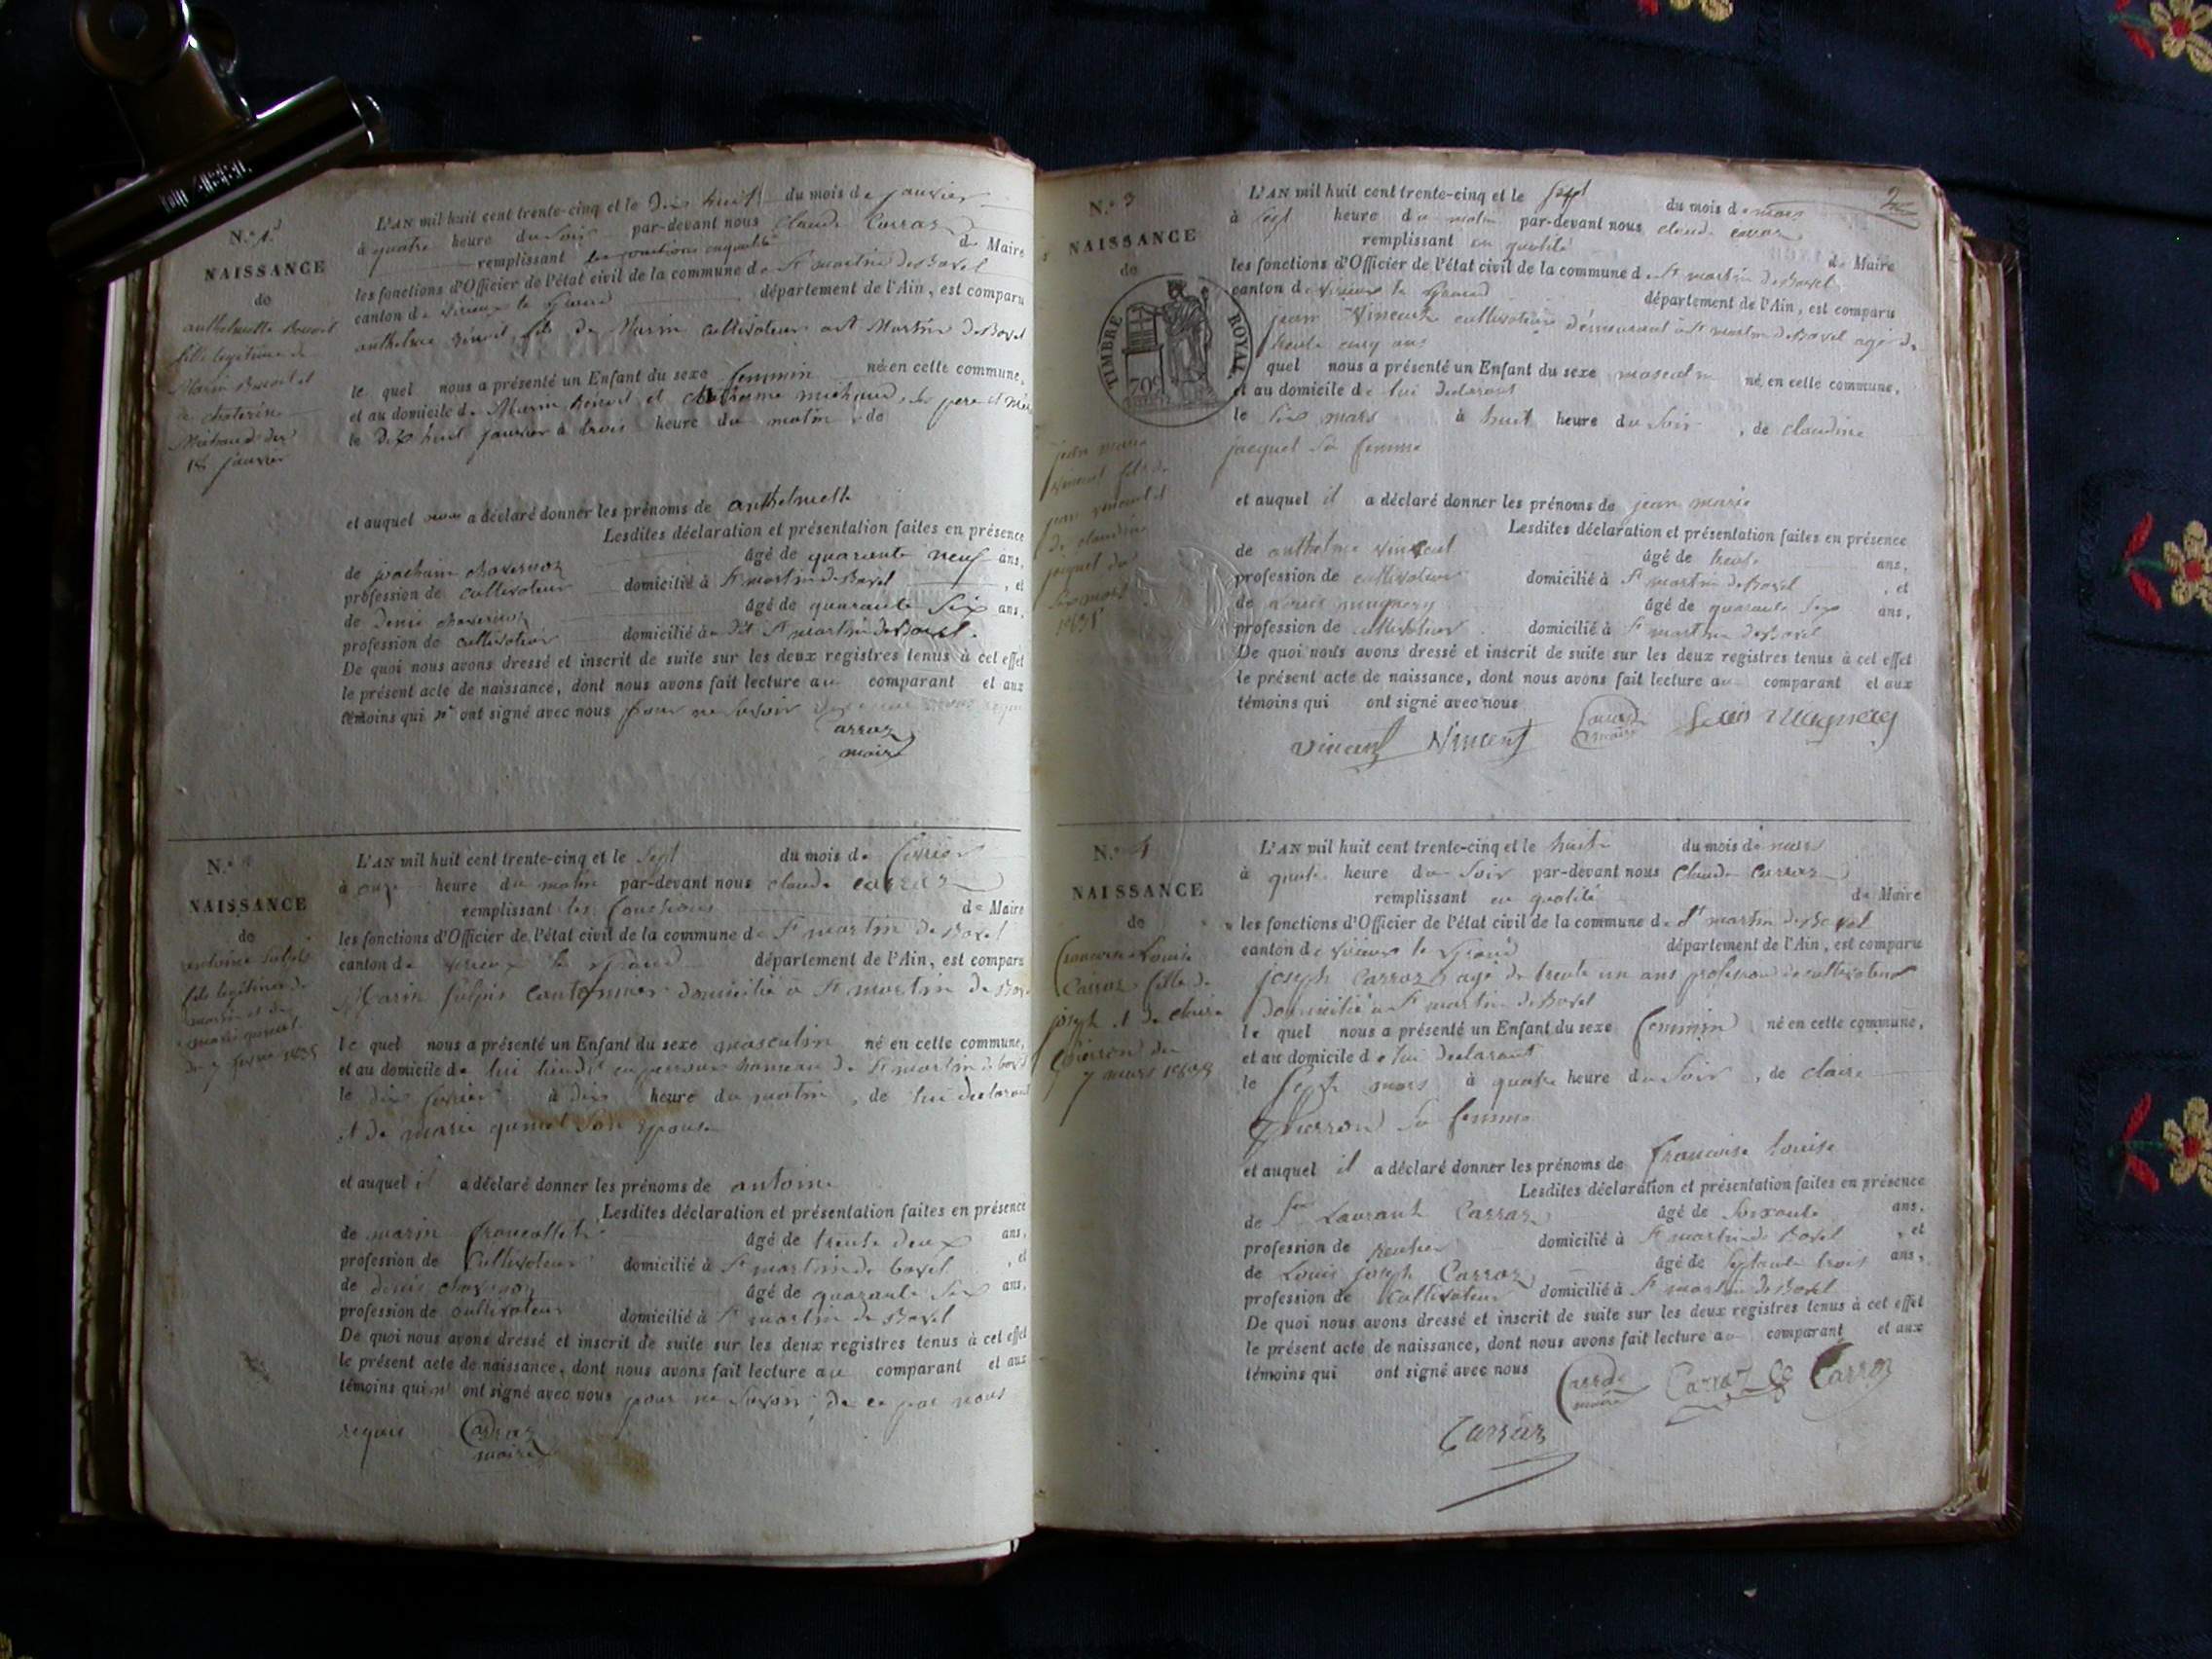 N.° 1.
NAISSANCE
de
anthelmette Benoit
fille legitime de
Marin Benoit et
de
Michaud du
18 janvier
L'AN mil huit cent trente-cinq et le Dix huit du mois de janvier
à quatre heure du Soir par-devant nous Claude Carraz
remplissant les fonctions enqualité de Maire
les fonctions d'Officier de l'état civil de la commune de St martin de Bavel
canton de Virieux le Grand département de l'Ain, est comparu
anthelme Benoit fils de Marin cultivateur a St Martin de Bavel
le quel nous a présenté un Enfant du sexe feminin né en cette commune,
et au domicile de Marin Benoit et michaud, ses pere et mère
le Dix huit janvier à trois heure du matin, de
et auquel nous a déclaré donner les prénoms de anthelmette
Lesdites déclaration et présentation faites en présence
de joachim chavernoz âgé de quarante neuf ans,
profession de cultivateur domicilié à St martin de Bavel, et
de Denis chavernoz âgé de quarante Six ans,
profession de cultivateur domicilié a dit St martin de Bavel.
De quoi nous avons dressé et inscrit de suite sur les deux registres tenus à cet effet
le présent acte de naissance, dont nous avons fait lecture au comparant et aux
témoins qui n' ont signé avec nous pour ne Savoir De ce par nous requis
Carraz
maire
N.°
NAISSANCE
de
antoine Sulpis
fils legitime de
martin et de
marie quinet
du 7 fevrier 1835
L'AN mil huit cent trente-cinq et le Sept du mois de fevrier
à onze heure du matin par-devant nous claude carraz
remplissant les fonctions de Maire
les fonctions d'Officier de l'état civil de la commune de St martin de Bavel
canton de Virieux le Grand département de l'Ain, est comparu
Marin Sulpis Cantonnier domicilié a St martin de Bavel
le quel nous a présenté un Enfant du sexe masculin né en cette commune,
et au domicile de lui lieudit hameau de St martin de bavel
le dix fevrier à dix heure du matin, de lui declarant
et de marie quinet Son Epouse
et auquel il a déclaré donner les prénoms de antoine
Lesdites déclaration et présentation faites en présence
de marin francallet âgé de trente deux ans,
profession de Cultivateur domicilié à St martin de bavel, et
de denis chavernoz âgé de quarante Six ans,
profession de cultivateur domicilié à St martin de Bavel
De quoi nous avons dressé et inscrit de suite sur les deux registres tenus à cet effet
le présent acte de naissance, dont nous avons fait lecture au comparant et aux
témoins qui n' ont signé avec nous pour ne Savoir, de ce par nous
requis Carraz
maire
N.° 3
NAISSANCE
de
TIMBRE ROYAL
70c
jean marie
vincent fils de
jean vincent et
de claudine
jaquet du
Six mars
1835
L'AN mil huit cent trente-cinq et le sept du mois de mars
à sept heure du matin par-devant nous claude carraz
remplissant en qualité de Maire
les fonctions d'Officier de l'état civil de la commune de St martin de Bavel
canton de Virieux le Grand département de l'Ain, est comparu
jean Vincent cultivateur demeurant à St martin de Bavel agé de
trente cinq ans
quel nous a présenté un Enfant du sexe masculin né en cette commune,
et au domicile de lui declarant
le Six mars à huit heure du Soir, de claudine
jacquet Sa femme
et auquel il a déclaré donner les prénoms de jean marie
Lesdites déclaration et présentation faites en présence
de anthelme vincent âgé de trente ans,
profession de cultivateur domicilié à St martin de Bavel, et
de Louis mugnery âgé de quarante Six ans,
profession de cultivateur domicilié à St martin de Bavel
De quoi nous avons dressé et inscrit de suite sur les deux registres tenus à cet effet
le présent acte de naissance, dont nous avons fait lecture au comparant et aux
témoins qui ont signé avec nous
Carraz
maire
Louis Mugnery
Vincent Vincent
N.° 4
NAISSANCE
de
francoise Louise
Carraz fille de
joseph et de claire
Thierron du
7 mars 1835
L'AN mil huit cent trente-cinq et le huit du mois de mars
à quatre heure du Soir par-devant nous Claude Carraz
remplissant en qualité de Maire
les fonctions d'Officier de l'état civil de la commune de St martin de Bavel
canton de Virieux le Grand département de l'Ain, est comparu
joseph Carraz agé de trente un ans profession de cultivateur
Domicilié a St martin de Bavel
le quel nous a présenté un Enfant du sexe feminin né en cette commune,
et au domicile de lui declarant
le Sept mars à quatre heure du Soir, de claire
Thierron Sa femme
et auquel il a déclaré donner les prénoms de francoise Louise
Lesdites déclaration et présentation faites en présence
de Laurant Carraz âgé de Soixante ans,
profession de rentier domicilié à St martin de Bavel, et
de Louis joseph Carraz âgé de Septante trois ans,
profession de Cultivateur domicilié à St martin de Bavel
De quoi nous avons dressé et inscrit de suite sur les deux registres tenus à cet effet
le présent acte de naissance, dont nous avons fait lecture au comparant et aux
témoins qui ont signé avec nous
Carraz
maire
Carraz Carraz
Carraz